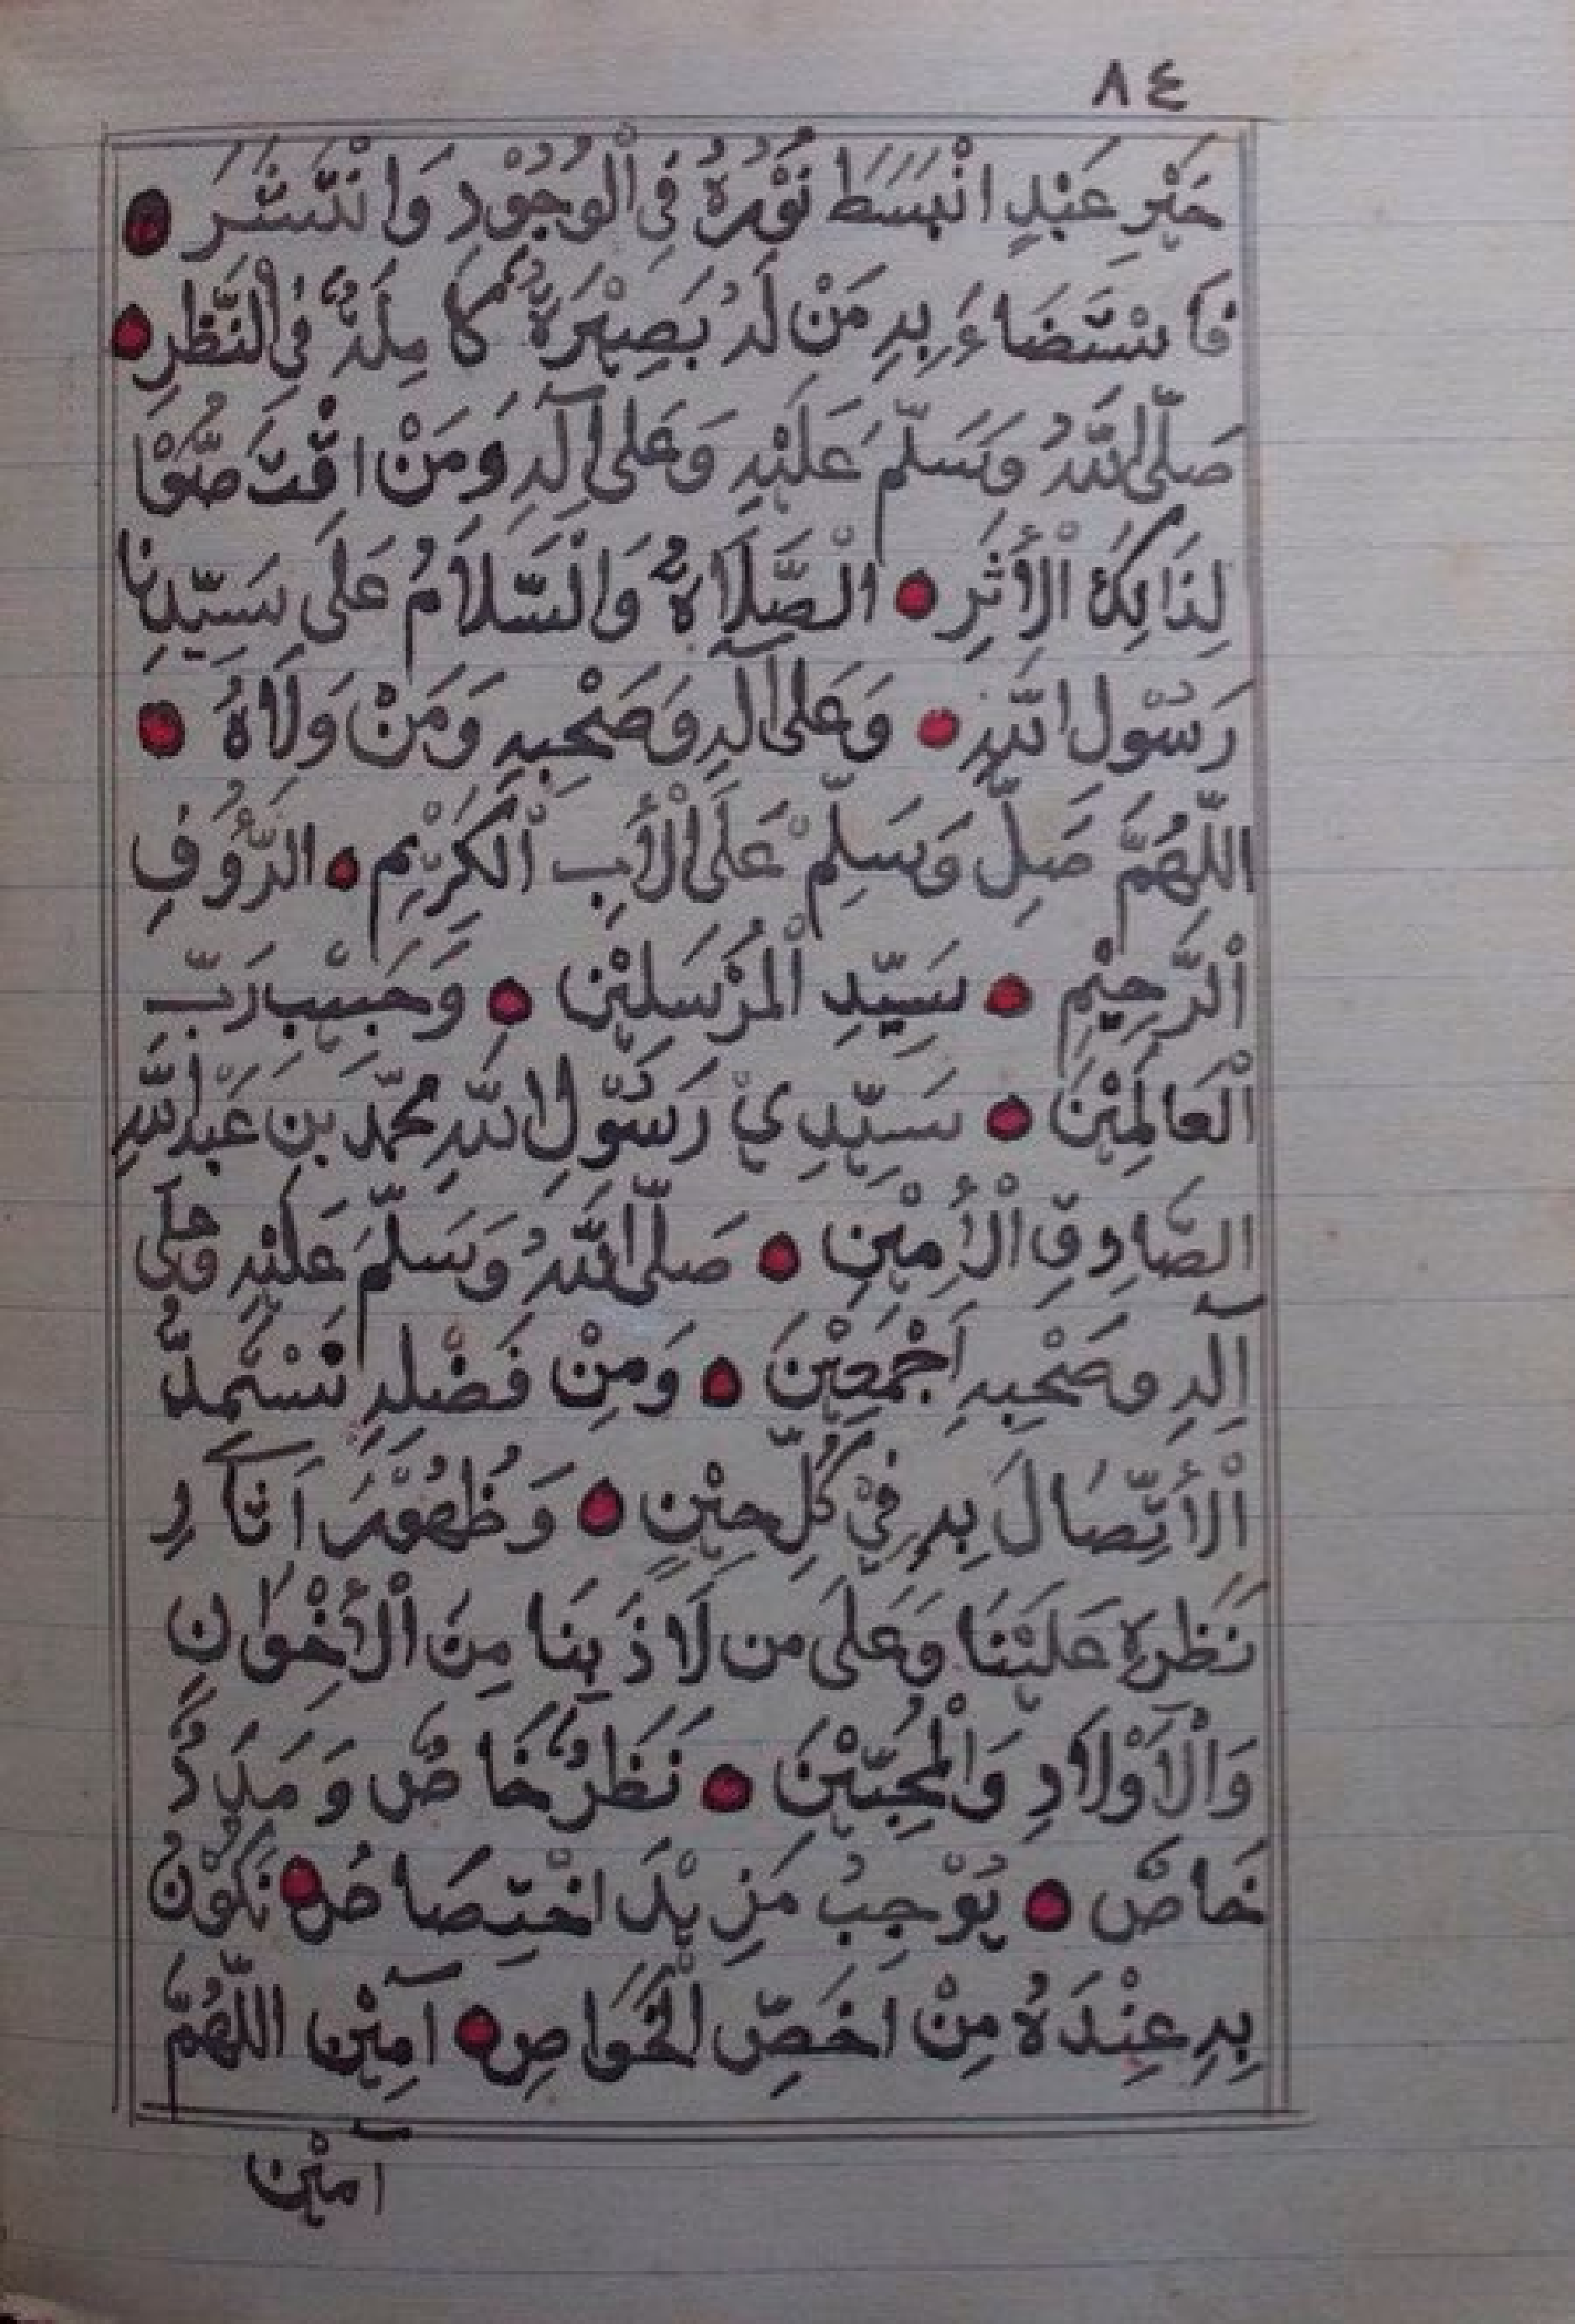 ٨٤
خَيْرِ عَبْدٍ انْبَسَطَ نُوْرُهُ فِي الْوُجُوْدِ وَانْتَشَرَ
فَاسْتَضَاءَ بِهِ مَنْ لَهُ بَصِيْرَةٌ كَامِلَةٌ فِي النَّظَرِ
صَلَّى اللهُ وَسَلَّمَ عَلَيْهِ وَعَلَى آلِهِ وَمَنْ اقْتَصُّوْا
لِذَالِكَ الْأَثَرِ الصَّلَاةُ وَالسَّلَامُ عَلَى سَيِّدِنَا
رَسُوْلِ اللهِ وَعَلَى آلِهِ وَصَحْبِهِ وَمَنْ وَلَاهُ
اللّهُمَّ صَلِّ وَسَلِّمْ عَلَى الْأَبِ الْكَرِيْمِ الرَّؤُوْفِ
الْرَّحِيْمِ سَيِّدِ الْمُرْسَلِيْن وَحَبِيْبِ رَبِّ
الْعَالَمِيْنَ سَيِّدِيْ رَسُوْلِ اللهِ محمّد بن عَبْدِ اللهِ
الصَّادِقِ الْأَمِيْنِ صَلَّى اللهُ وَسَلَّمَ عَلَيْهِ وَعَلَى
آلِهِ وَصَحْبِهِ اَجْمَعِيْنَ وَمِنْ فَضْلِهِ نَسْتَمِدُّ
الْأتِّصَالَ بِهِ فِيْ كُلِّ حِيْنٍ وَظُهُوْرَ آثَارِ
نَظَرِهِ عَلَيْنَا وَعَلَى من لَاذَ بِنَا مِنَ الْأِخْوَانِ
وَالْاَوْلَادِ وَالْمُحِبّيْنَ نَظَرٌ خَاصٌ وَمَدَدٌ
خَاصٌ يُوْجِبُ مَزِيْدَ اخْتِصَاصٍ نَكُوْنُ
بِهِ عِنْدَهُ مِنْ اَخَصِّ الْخَوَاصِ آمِيْن اللّهُمَّ
آمِيْن